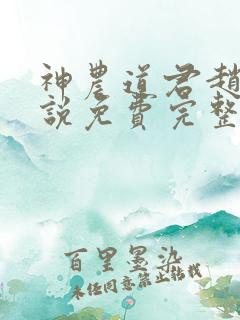 神農道君趙
說免費完整
百里墨染
未任同意禁止拈載